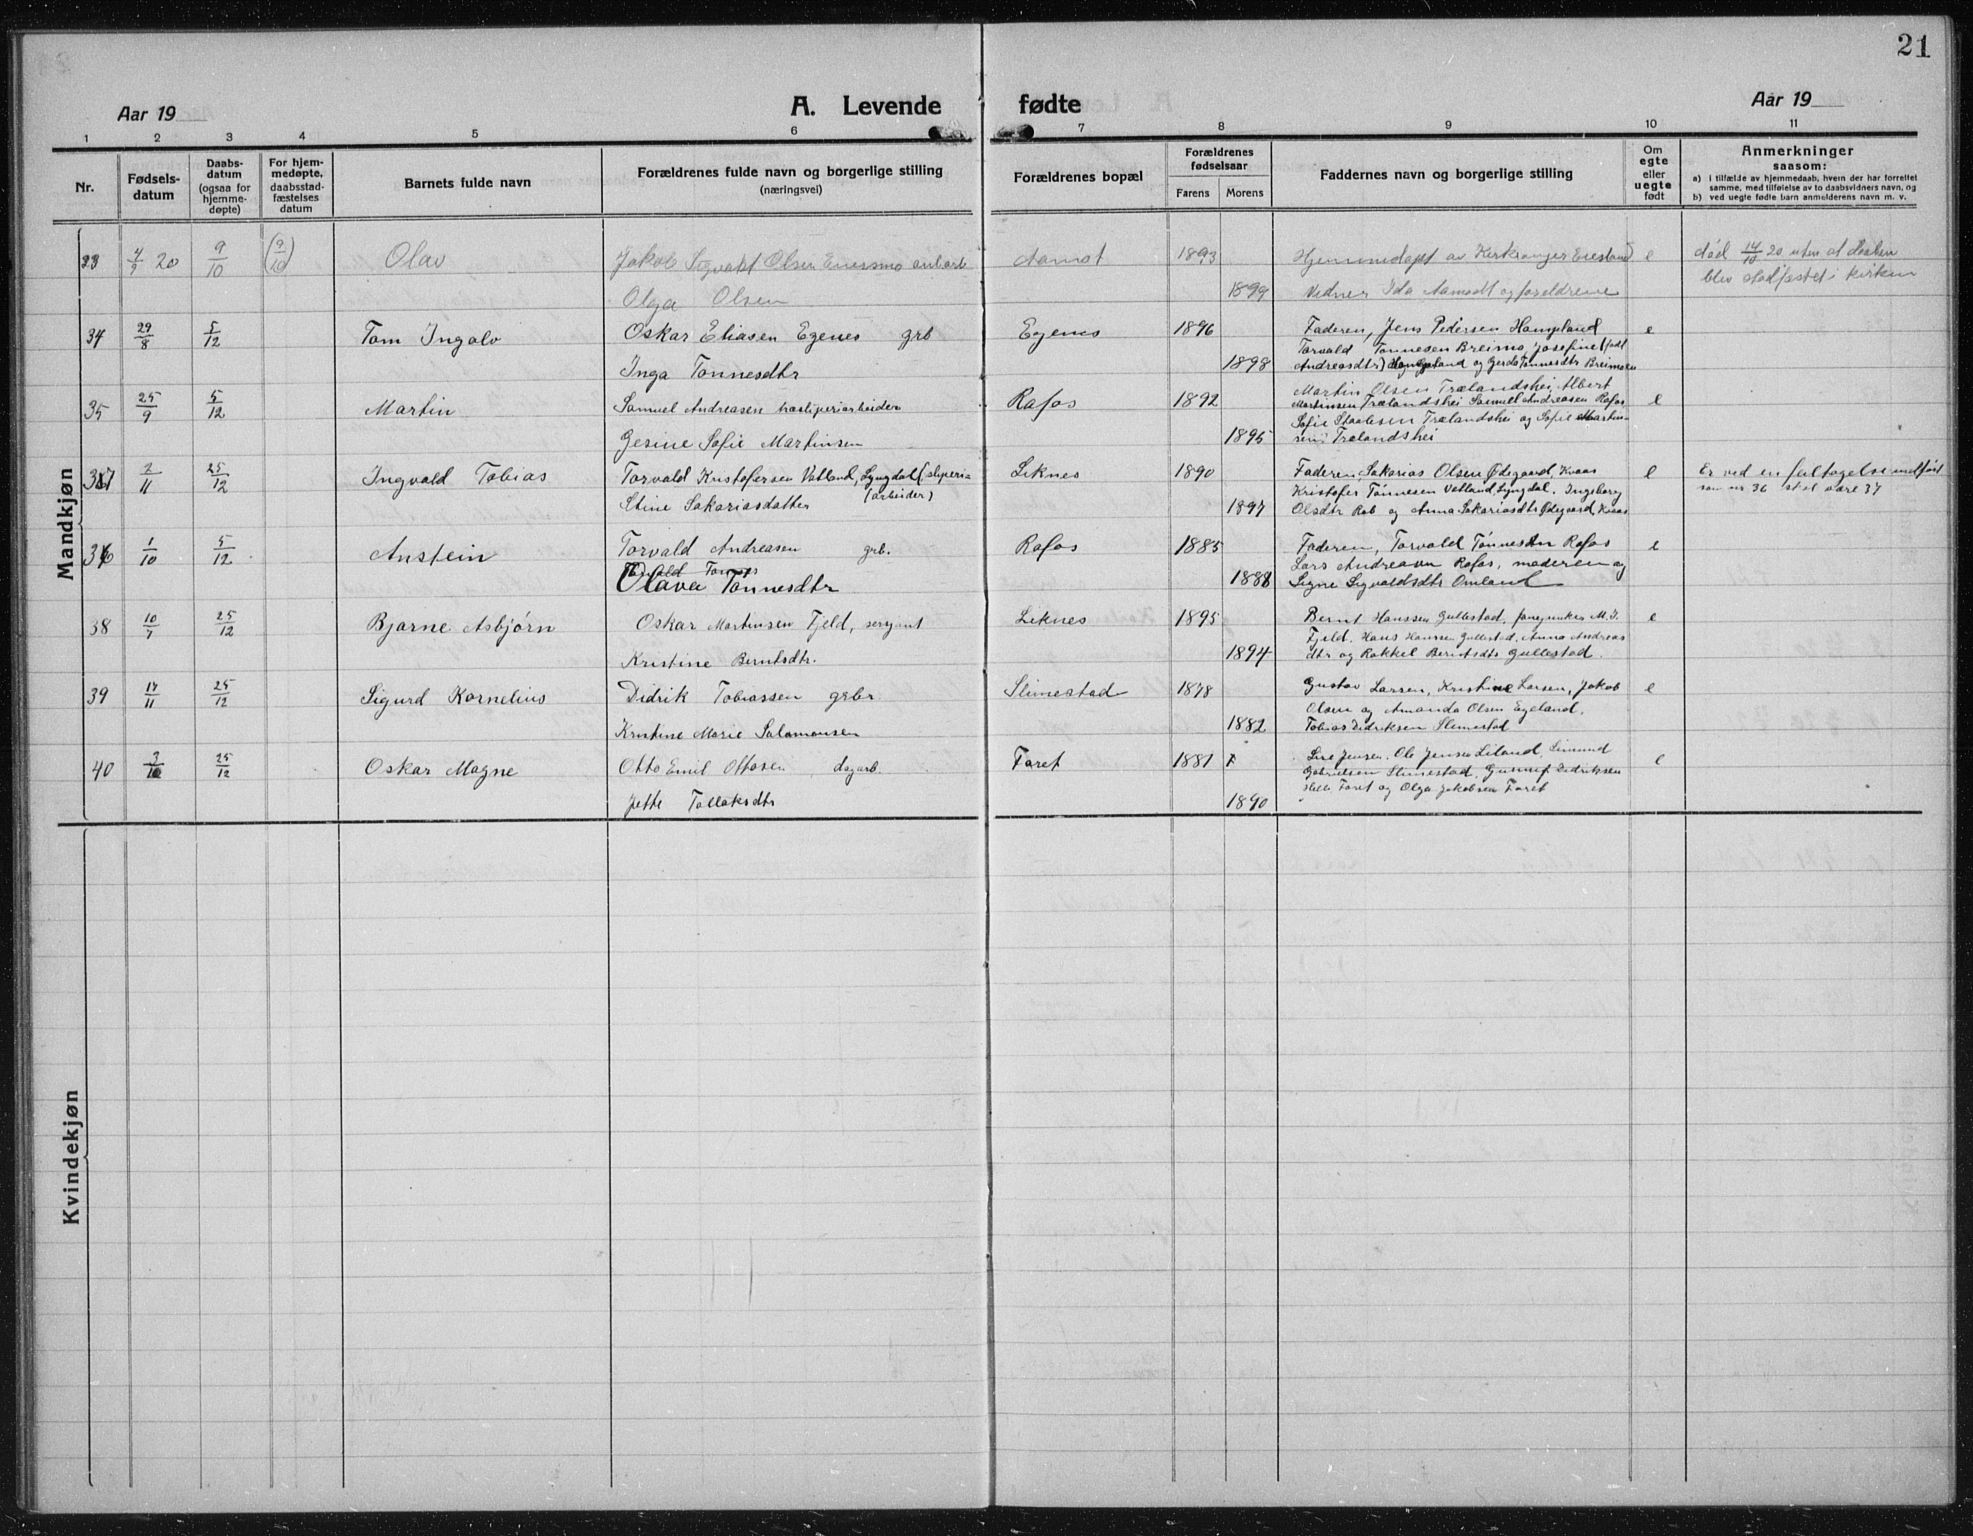 21
Aar 19
A. Levende fødte
Aar 19
1 2 3 4 5 6 7 8 9 10 11
Nr.
Fødsels-
datum
Daabs-
datum
(ogsaa for
hjemme-
døpte)
For hjem-
medøpte,
daabsstad-
fæstelses
datum
Barnets fulde navn
Forældrenes fulde navn og borgerlige stilling
(næringsvei)
Forældrenes bopæl
Forældrenes
fødselsaar
Farens Morens
Faddernes navn og borgerlige stilling
Om
egte
eller
uegte
født
Anmerkninger
saasom:
a) i tilfælde av hjemmedaab, hvem der har forrettet
samme, med tilføielse av to daabsvidners navn, og
b) ved uegte fødte barn anmelderens navn m. v.
Mandkjøn
33 4/9 20 9/10 (9/10) Olav Jakob Sigvald Olsen Aamot 1893 Hjemmedøpt av Kirkesanger e død 14/10 20 uten at daaben
Olga Olsen 1899 Vidner Ida Aamodt og foreldrene blev stadfæstet i kirken
34 29/8 5/12 Tom Ingolv Oskar Eliasen Egenes grb Egenes 1896 Faderen, Jens Pedersen Haugeland e
Torvald Tønnesen Breimo, Josefine
Inga Tønnesdtr 1898 Andreasdtr) Haugeland og Gerda Tønnesdtr Breimoen
35 25/9 5/12 Martin Samuel Andreasen træsliperiarbeider Rafos 1892 Martin Olsen Trælandshei, Albert
Martinsen Trælandshei Samuel Andreasen Rafos e
Sofie Trælandshei og Sofie Martin-
Gesine Sofie Martinsen 1895 sen, Trælandshei
37 2/11 25/12 Ingvald Tobias Torvald Kristofersen Vatland, Lyngdal (sliperi- Liknes 1890 Faderen, Sakarias Olsen Ødegaard, Kvaas e Er ved en feiltagelse indført
(arbeider) Kristofer Tønnesen Vatland, Lyngdal. Ingeborg som nr. 36 skal være 37
Stine Sakariasdatter 1897 Olsdtr Rob og Anna Sakariasdtr Ødegaard, Kvaas
36 1/10 5/12 Anstein Torvald Andreasen grb. Rafos 1885 Faderen, Torvald Tønnesen Rafos e
Torvald Tønnes Lars Andreasen Rafos, moderen og
Olava Tønnesdtr 1888 Signe Sigvaldsdtr Omland
38 10/7 25/12 Bjarne Asbjørn Oskar Martinsen Fjeld, sersjant Liknes 1895 Bernt Hanssen Gullestad, M. J. e
Fjeld, Hans Hanssen Gullestad, Anna Andreas
Kristine Berntsdtr. 1894 dtr og Rakkel Berntsdtr Gullestad.
39 17/11 25/12 Sigurd Kornelius Didrik Tobiassen grbr Slimestad 1878 Gustav Larsen, Kristine Larsen, Jakob e
Olsen og Amanda Olsen Egeland.
Kristine Marie Salamonsen 1882 Tobias Didriksen Slimestad
40 3/10 25/12 Oskar Magne Otto Emil Ottosen dagarb. Faret 1881 Jensen. Ole Jensen Liland Simund e
Gabrielsen Slimestad. Didriksen
Jette Tollaksdtr 1890 Faret og Olga Jakobsen Faret
Kvindekjøn